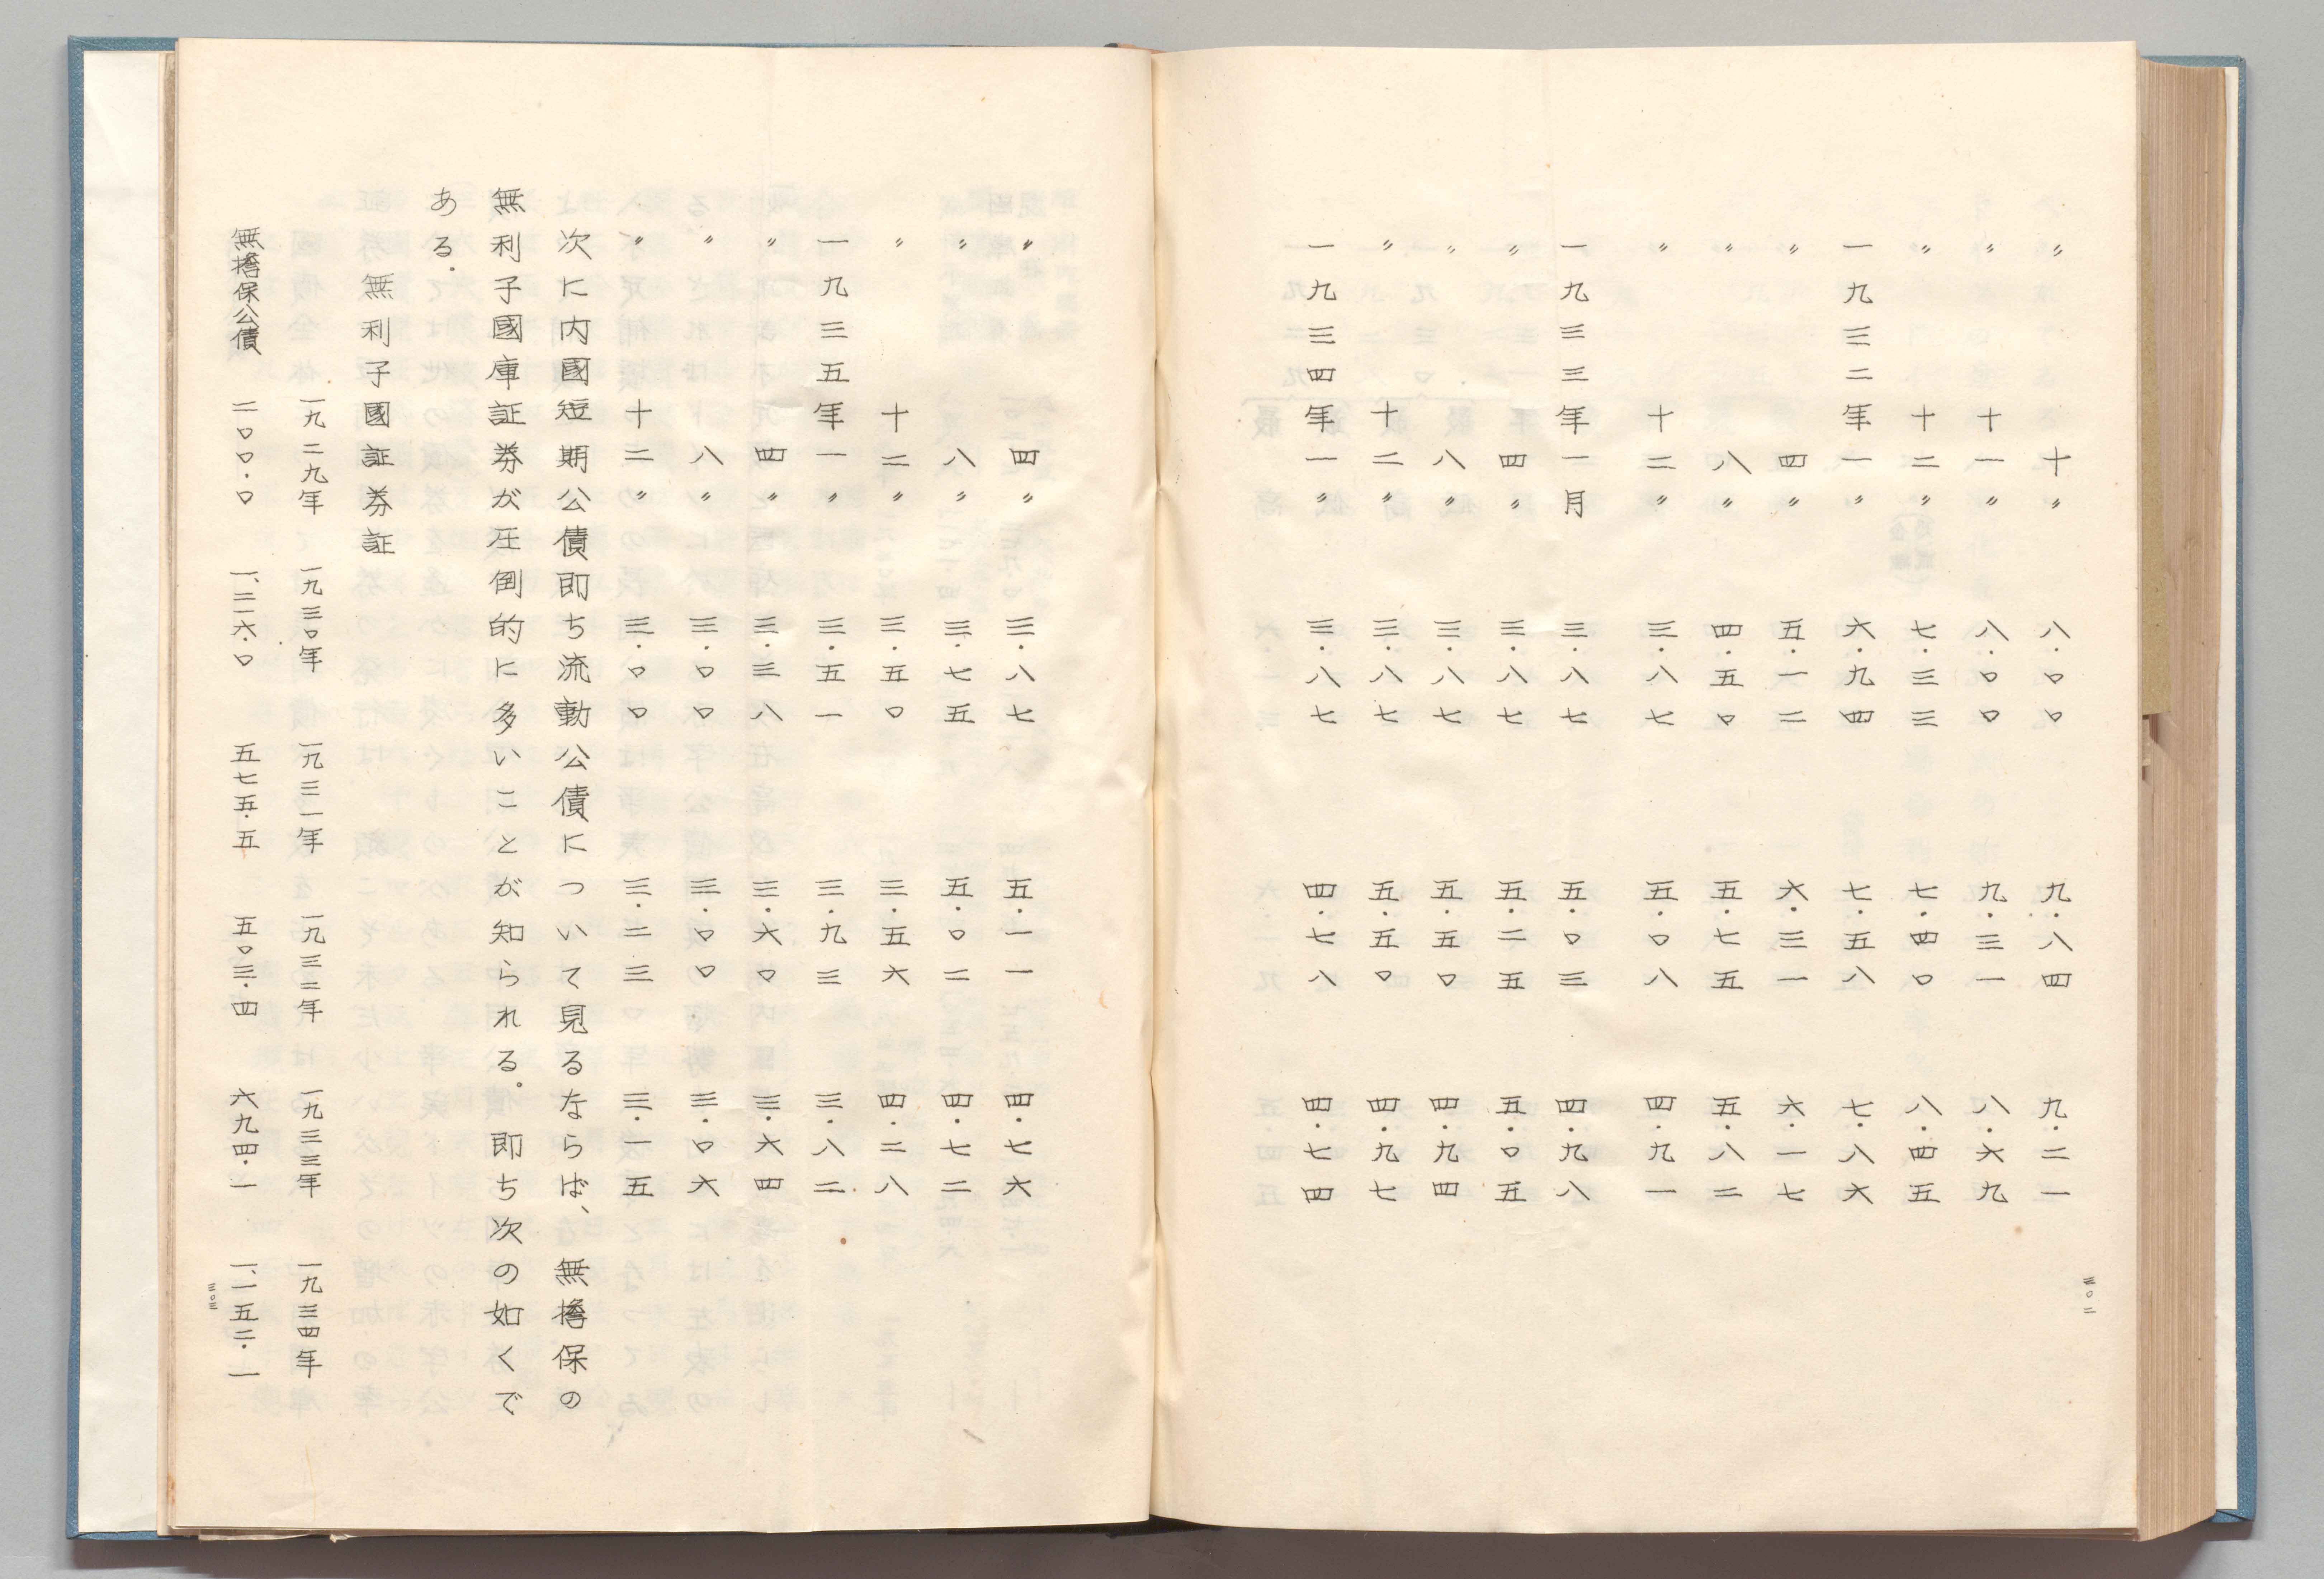 〃 十〃 八・〇〇 九・八四 九・二一
〃 十一〃 八・〇〇 九・三一 八・六九
〃 十二〃 七・三三 七・四〇 八・四五
一九三二年一〃 六・九四 七・五八 七・八六
〃 四〃 五・一二 六・三一 六・一七
〃 八〃 四・五〇 五・七五 五・八二
〃 十二〃 三・八七 五・〇八 四・九一
一九三三年一月 三・八七 五・〇三 四・九八
〃 四〃 三・八七 五・二五 五・〇五
〃 八〃 三・八七 五・五〇 四・九四
〃 十二〃 三・八七 五・五〇 四・九七
一九三四年一〃 三・八七 四・七八 四・七四
三〇二
〃 四〃 三・八七 五・一一 四・七六
〃 八〃 三・七五 五・〇二 四・七二
〃 十二〃 三・五〇 三・五六 四・二八
一九三五年一〃 三・五一 三・九三 三・八二
〃 四〃 三・三八 三・六〇 三・六四
〃 八〃 三・〇〇 三・〇〇 三・〇六
〃 十二〃 三・〇〇 三・二三 三・一五
次に内國短期公債即ち流動公債について見るならば、無擔保の
無利子國庫証券が圧倒的に多いことが知られる。即ち次の如くで
ある.
無利子國証券証
一九二九年 一九三〇年 一九三一年 一九三二年 一九三三年 一九三四年
無擔保公債 二〇〇・〇 一、三一六・〇 五七五・五 五〇三・四 六九四・一 一、一五二・一
三〇三